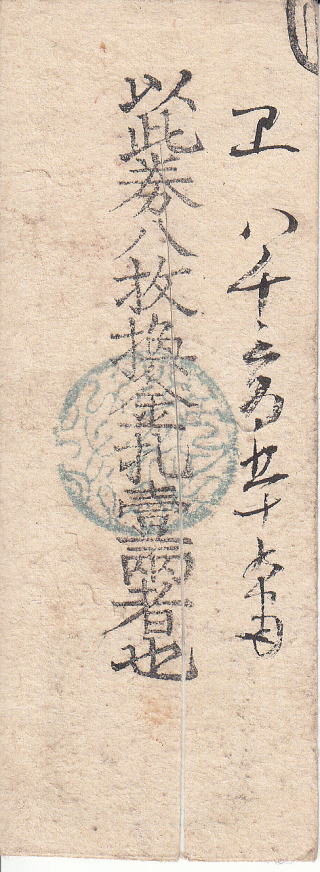 卫 八千二百五十六番
以此券八枚換金札壹兩者也